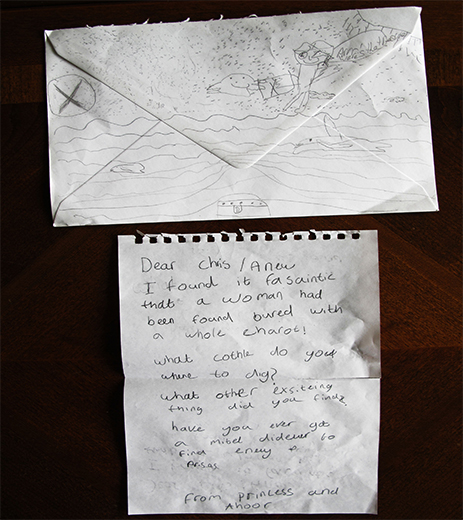 Dear Chris / Anew
I found it fasaintic
that a woman had
been found bured with
a whole charot!
what cothle do you
where to dig?
what other exsiteing
thing did you find?
have you ever got
a mitel didecer to
find eney
From Princess and
Ahoor